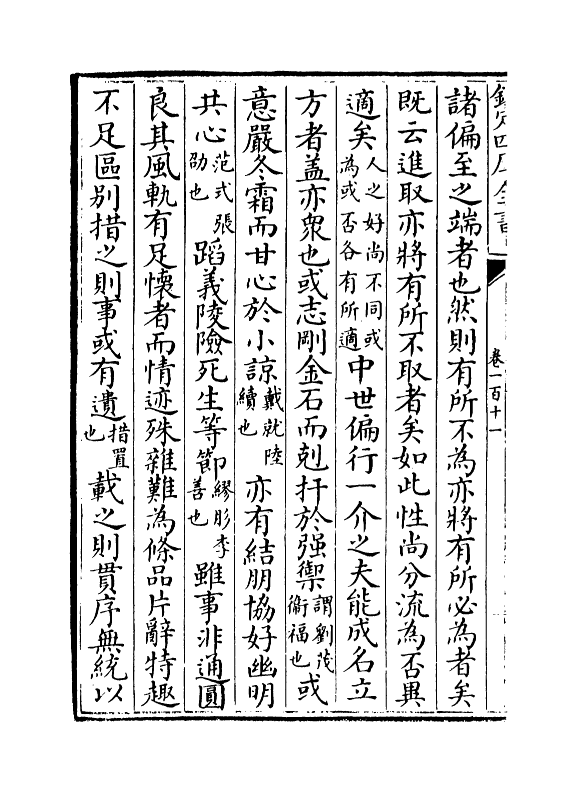 欽定四庫全書
卷一百十一
諸偏至之端者也然則有所不為亦將有所必為者矣
既云進取亦將有所不取者矣如此性尚分流為否異
適矣人之好尚不同或為或否各有所適中世偏行一介之夫能成名立
方者盖亦衆也或志剛金石而剋扞於强禦謂劉茂衞福也或
意嚴冬霜而甘心於小諒戴就陸續也亦有結朋協好幽明
共心范式張劭也蹈義陵險死生等節繆肜李善也雖事非通圓
良其風軌有足懷者而情迹殊雜難為條品片辭特趣
不足區别措之則事或有遺措置也載之則貫序無統以